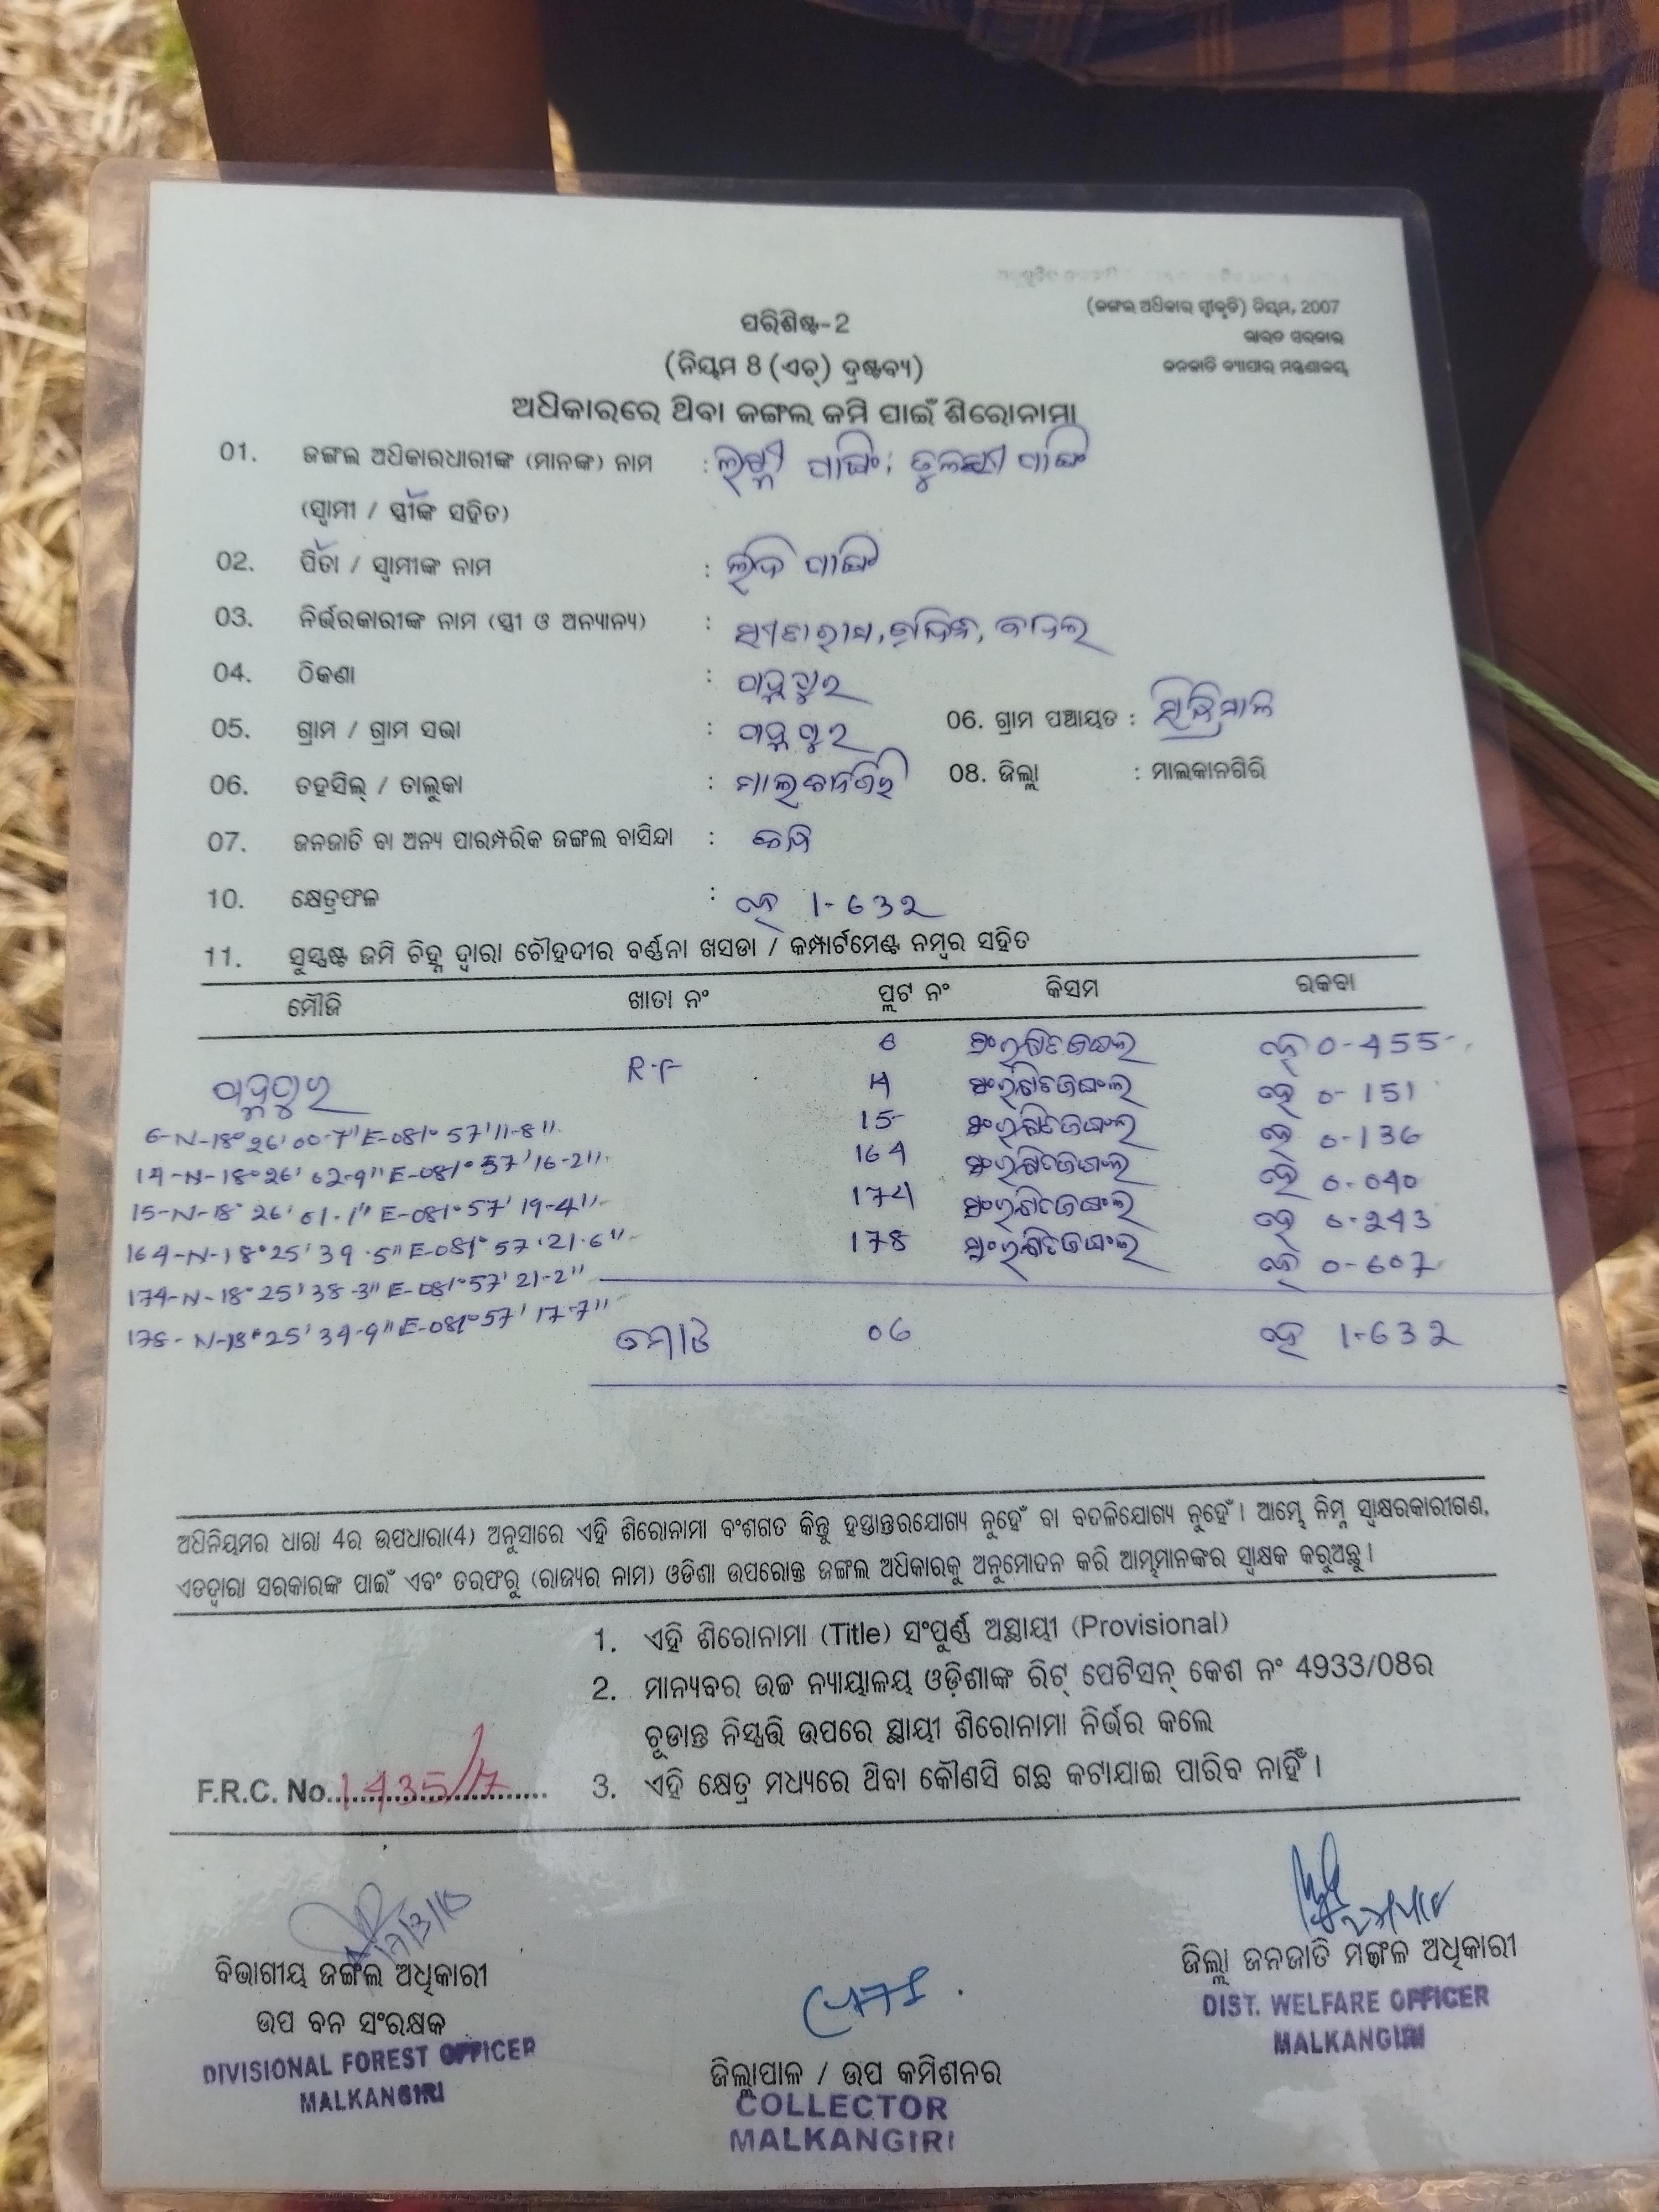 (ଜଙ୍ଗଲ ଅଧିକାର ସ୍ୱୀକୃତି) ନିୟମ, 2007
ଭାରତ ସରକାର
ଜନଜାତି ବ୍ୟାପାର ମନ୍ତ୍ରଣାଳୟ
ପରିଶିଷ୍ଟ-2
(ନିୟମ 8 (ଏଚ୍) ଦ୍ରଷ୍ଟବ୍ୟ)
ଅଧିକାରରେ ଥିବା ଜଙ୍ଗଲ ଜମି ପାଇଁ ଶିରୋନାମା
01. ଜଙ୍ଗଲ ଅଧିକାରଧାରୀଙ୍କ (ମାନଙ୍କ) ନାମ :
(ସ୍ୱାମୀ / ସ୍ତ୍ରୀଙ୍କ ସହିତ)
02. ପିତା / ସ୍ୱାମୀଙ୍କ ନାମ :
03. ନିର୍ଭରକାରୀଙ୍କ ନାମ (ସ୍ତ୍ରୀ ଓ ଅନ୍ୟାନ୍ୟ) :
04. ଠିକଣା :
05. ଗ୍ରାମ / ଗ୍ରାମ ସଭା : 06. ଗ୍ରାମ ପଞ୍ଚାୟତ :
06. ତହସିଲ୍ / ତାଲୁକା : ମାଲକାନଗିରି 08. ଜିଲ୍ଲା : ମାଲକାନଗିରି
07. ଜନଜାତି ବା ଅନ୍ୟ ପାରମ୍ପରିକ ଜଙ୍ଗଲ ବାସିନ୍ଦା :
10. କ୍ଷେତ୍ରଫଳ : ହେ 1-632
11. ସୁସ୍ପଷ୍ଟ ଜମି ଚିହ୍ନ ଦ୍ୱାରା ଚୌହଦୀର ବର୍ଣ୍ଣନା ଖସଡା / କମ୍ପାର୍ଟମେଣ୍ଟ ନମ୍ବର ସହିତ
ମୌଜି ଖାତା ନଂ ପ୍ଲଟ ନଂ କିସମ ରକବା
R-F 6 ସଂରକ୍ଷିତଜଙ୍ଗଲ ହେ 0-455
14 ସଂରକ୍ଷିତଜଙ୍ଗଲ ହେ 0-151
15 ସଂରକ୍ଷିତଜଙ୍ଗଲ ହେ 0-136
164 ସଂରକ୍ଷିତଜଙ୍ଗଲ ହେ 0-040
174 ସଂରକ୍ଷିତଜଙ୍ଗଲ ହେ 0-243
178 ସଂରକ୍ଷିତଜଙ୍ଗଲ ହେ 0-607
6-N-18°26'00-7" E-081°57'11-8"
14-N-18°26'02-9" E-081°57'16-2"
15-N-18°26'01-1" E-081°57'19-4"
164-N-18°25'39-5" E-081°57'21-6"
174-N-18°25'38-3" E-081°57'21-2"
178-N-18°25'34-9" E-081°57'17-7"
ମୋଟ 06 ହେ 1-632
ଅଧିନିୟମର ଧାରା 4ର ଉପଧାରା(4) ଅନୁସାରେ ଏହି ଶିରୋନାମା ବଂଶଗତ କିନ୍ତୁ ହସ୍ତାନ୍ତରଯୋଗ୍ୟ ନୁହେଁ ବା ବଦଳିଯୋଗ୍ୟ ନୁହେଁ। ଆମ୍ଭେ ନିମ୍ନ ସ୍ୱାକ୍ଷରକାରୀଗଣ,
ଏତଦ୍ୱାରା ସରକାରଙ୍କ ପାଇଁ ଏବଂ ତରଫରୁ (ରାଜ୍ୟର ନାମ) ଓଡିଶା ଉପରୋକ୍ତ ଜଙ୍ଗଲ ଅଧିକାରକୁ ଅନୁମୋଦନ କରି ଆମ୍ଭମାନଙ୍କର ସ୍ୱାକ୍ଷକ କରୁଅଛୁ।
1. ଏହି ଶିରୋନାମା (Title) ସଂପୂର୍ଣ୍ଣ ଅସ୍ଥାୟୀ (Provisional)
2. ମାନ୍ୟବର ଉଚ୍ଚ ନ୍ୟାୟାଳୟ ଓଡ଼ିଶାଙ୍କ ରିଟ୍ ପେଟିସନ୍ କେଶ ନଂ 4933/08ର
ଚୂଡାନ୍ତ ନିସ୍ପତ୍ତି ଉପରେ ସ୍ଥାୟୀ ଶିରୋନାମା ନିର୍ଭର କଲେ
3. ଏହି କ୍ଷେତ୍ର ମଧ୍ୟରେ ଥିବା କୌଣସି ଗଛ କଟାଯାଇ ପାରିବ ନାହିଁ।
F.R.C. No. 1435/7
ବିଭାଗୀୟ ଜଙ୍ଗଲ ଅଧିକାରୀ
ଉପ ବନ ସଂରକ୍ଷକ
DIVISIONAL FOREST OFFICER
MALKANGIRI
ଜିଲ୍ଲାପାଳ / ଉପ କମିଶନର
COLLECTOR
MALKANGIRI
ଜିଲ୍ଲା ଜନଜାତି ମଙ୍ଗଳ ଅଧିକାରୀ
DIST. WELFARE OFFICER
MALKANGIRI